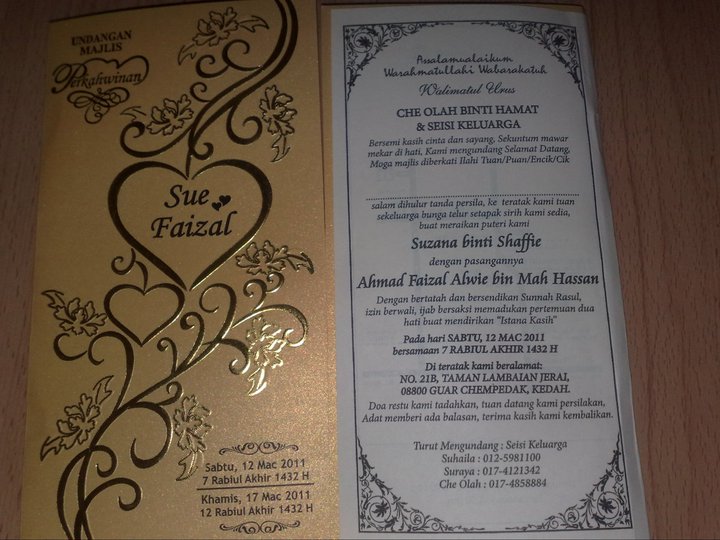 UNDANGAN
MAJLIS
Perkahwinan
Sue
Faizal
Sabtu, 12 Mac 2011
7 Rabiul Akhir 1432 H
Khamis, 17 Mac 2011
12 Rabiul Akhir 1432 H
Assalamualaikum
Warahmatullahi Wabarakatuh
Walimatul Urus
CHE OLAH BINTI HAMAT
& SEISI KELUARGA
Bersemi kasih cinta dan sayang, Sekuntum mawar
mekar di hati, Kami mengundang Selamat Datang,
Moga majlis diberkati Ilahi Tuan/Puan/Encik/Cik
salam dihulur tanda persila, ke teratak kami tuan
sekeluarga bunga telur setapak sirih kami sedia,
buat meraikan puteri kami
Suzana binti Shaffie
dengan pasangannya
Ahmad Faizal Alwie bin Mah Hassan
Dengan bertatah dan bersendikan Sunnah Rasul,
izin berwali, ijab bersaksi memadukan pertemuan dua
hati buat mendirikan "Istana Kasih"
Pada hari SABTU, 12 MAC 2011
bersamaan 7 RABIUL AKHIR 1432 H
Di teratak kami beralamat:
NO. 21B, TAMAN LAMBAIAN JERAI,
08800 GUAR CHEMPEDAK, KEDAH.
Doa restu kami tadahkan, tuan datang kami persilakan,
Adat memberi ada balasan, terima kasih kami kembalikan.
Turut Mengundang : Seisi Keluarga
Suhaila : 012-5981100
Suraya : 017-4121342
Che Olah : 017-4858884